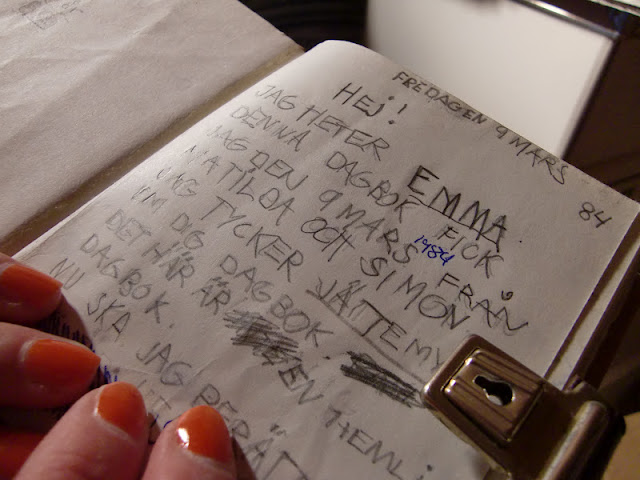 FREDAGEN 9 MARS
84
HEJ!
JAG HETER EMMA.
DENNA DAGBOK FICK
JAG DEN 9 MARS 1984 FRÅN
MATILDA OCH SIMON
JAG TYCKER JÄTTEMY
OM DIG DAGBOK.
DET HÄR ÄR EN HEMLI
DAGBOK.
NU SKA JAG BERÄTT